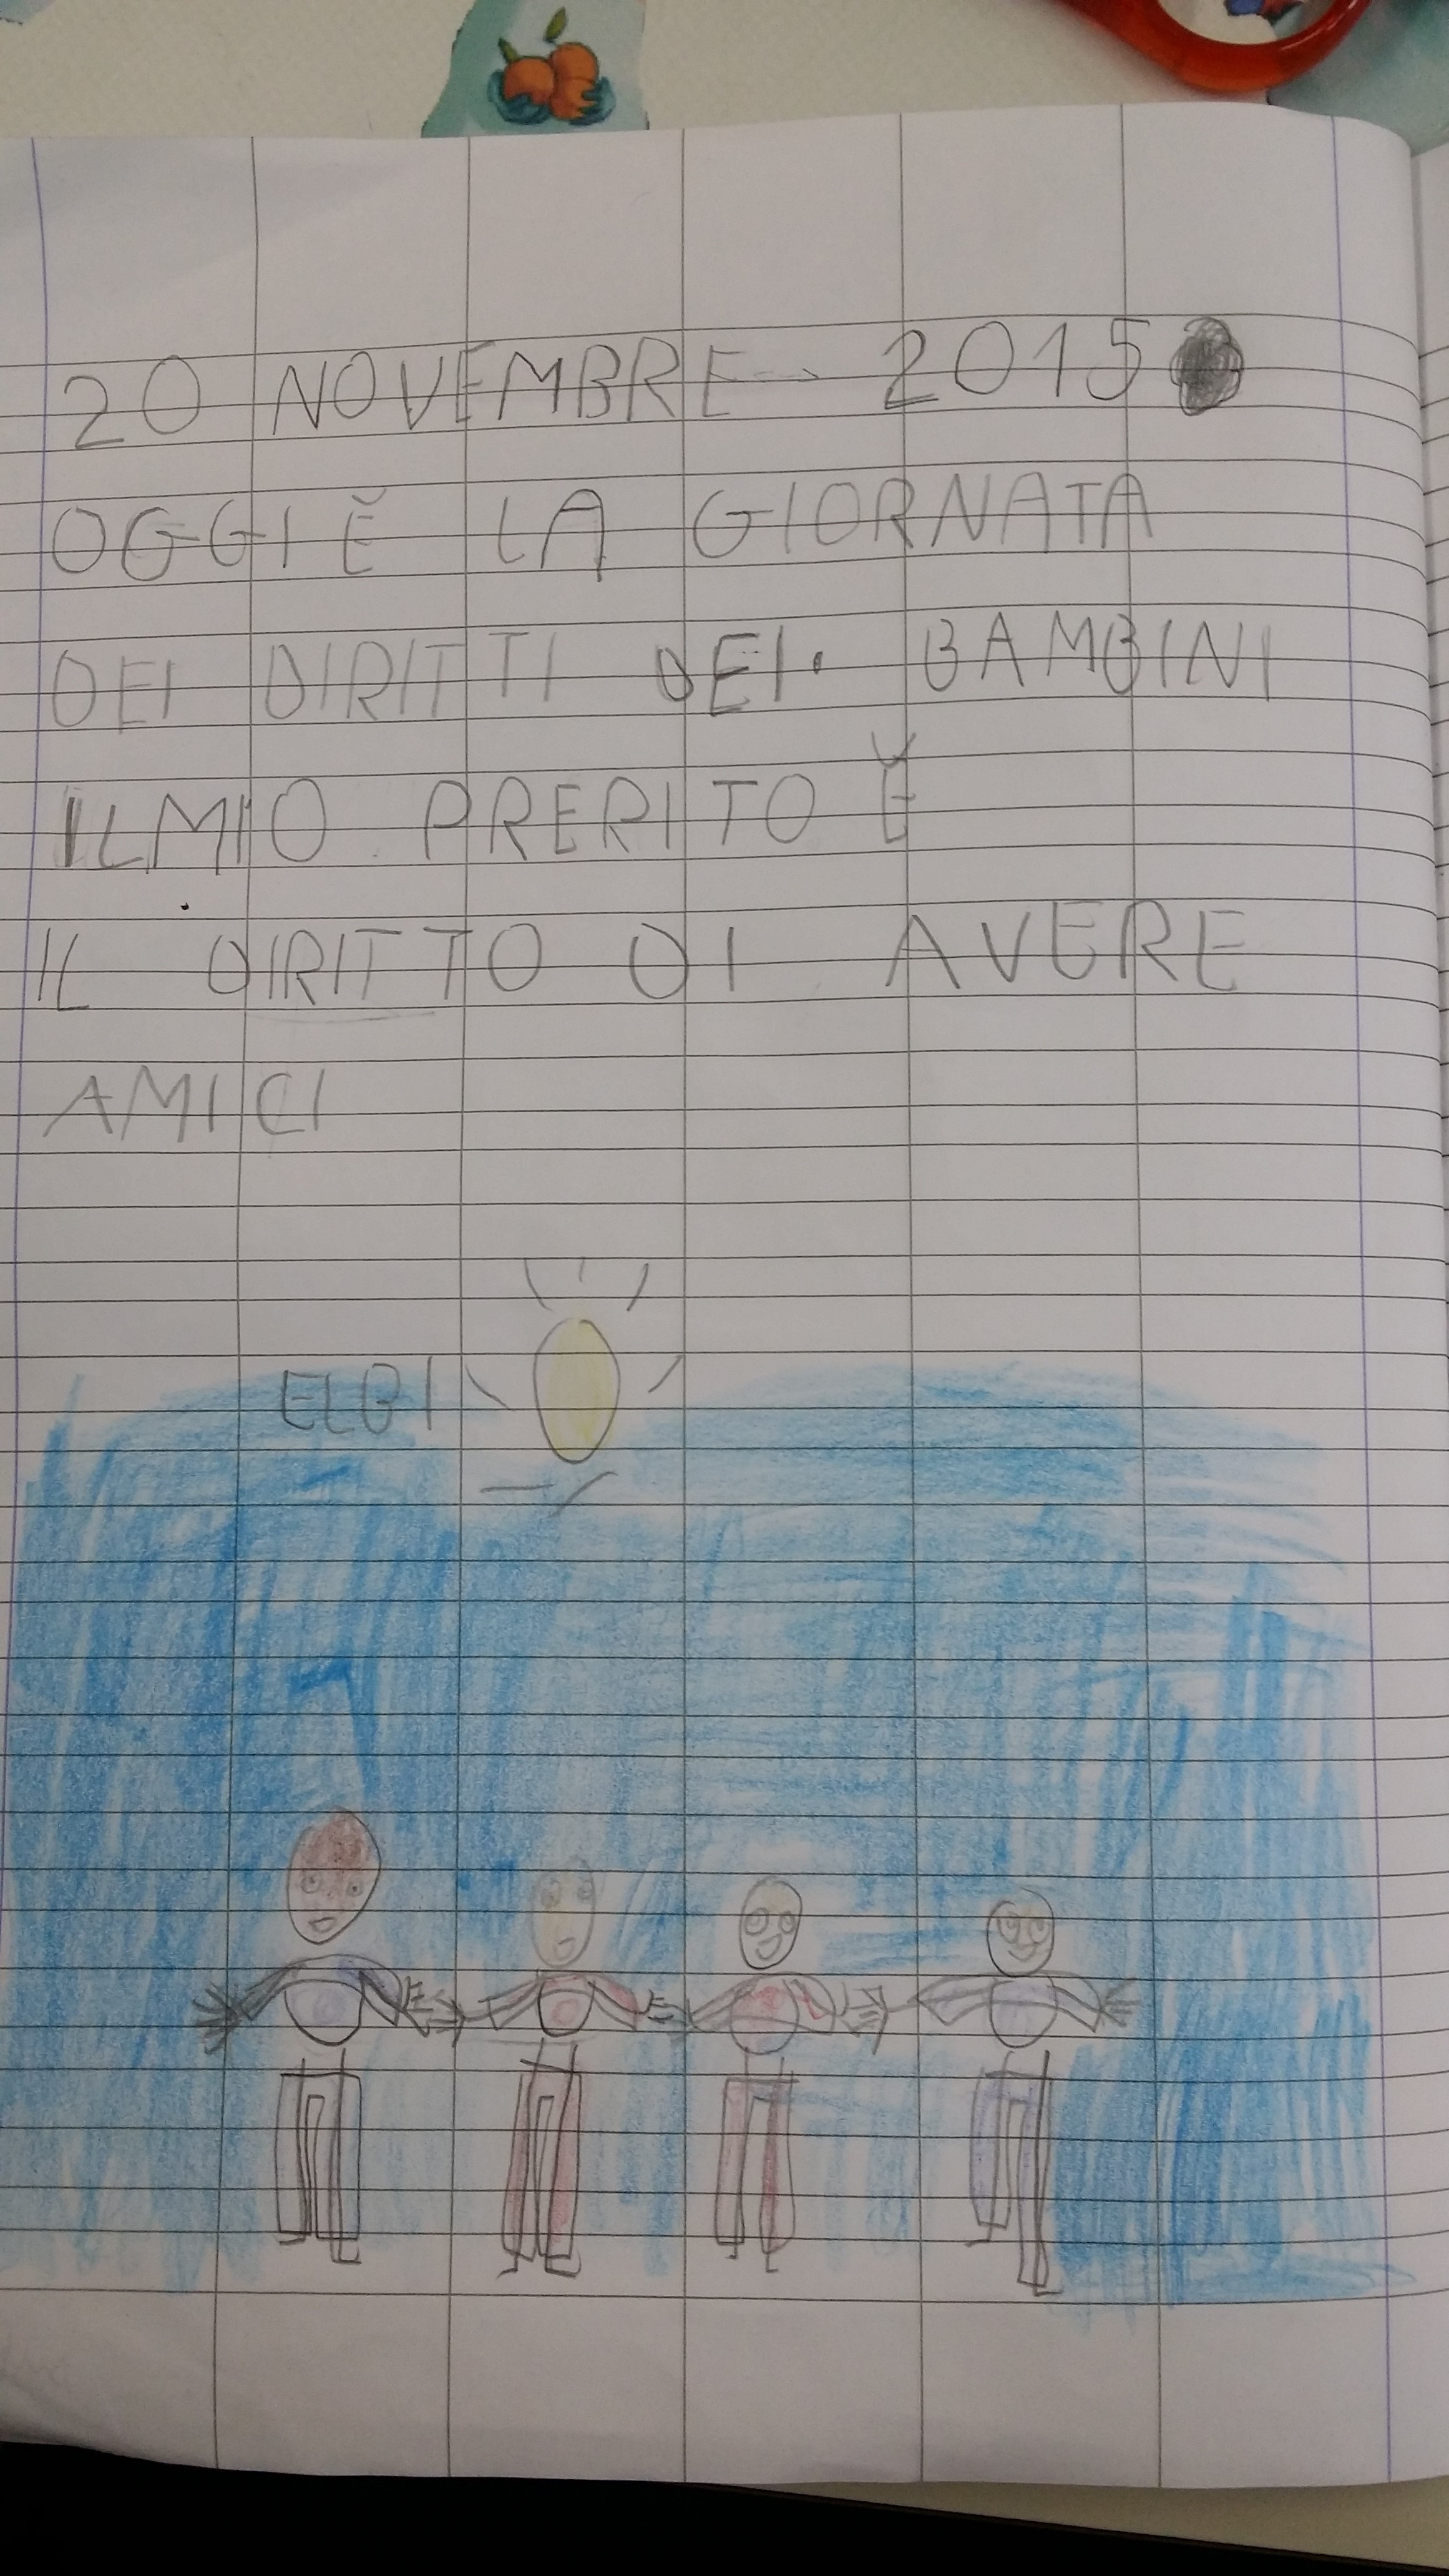 20 NOVEMBRE 2015
OGGI Ĕ LA GIORNATA
DEI DIRITTI DEI BAMBINI
ILMIO PRERITO Ĕ
IL DIRITTO DI AVERE
AMICI